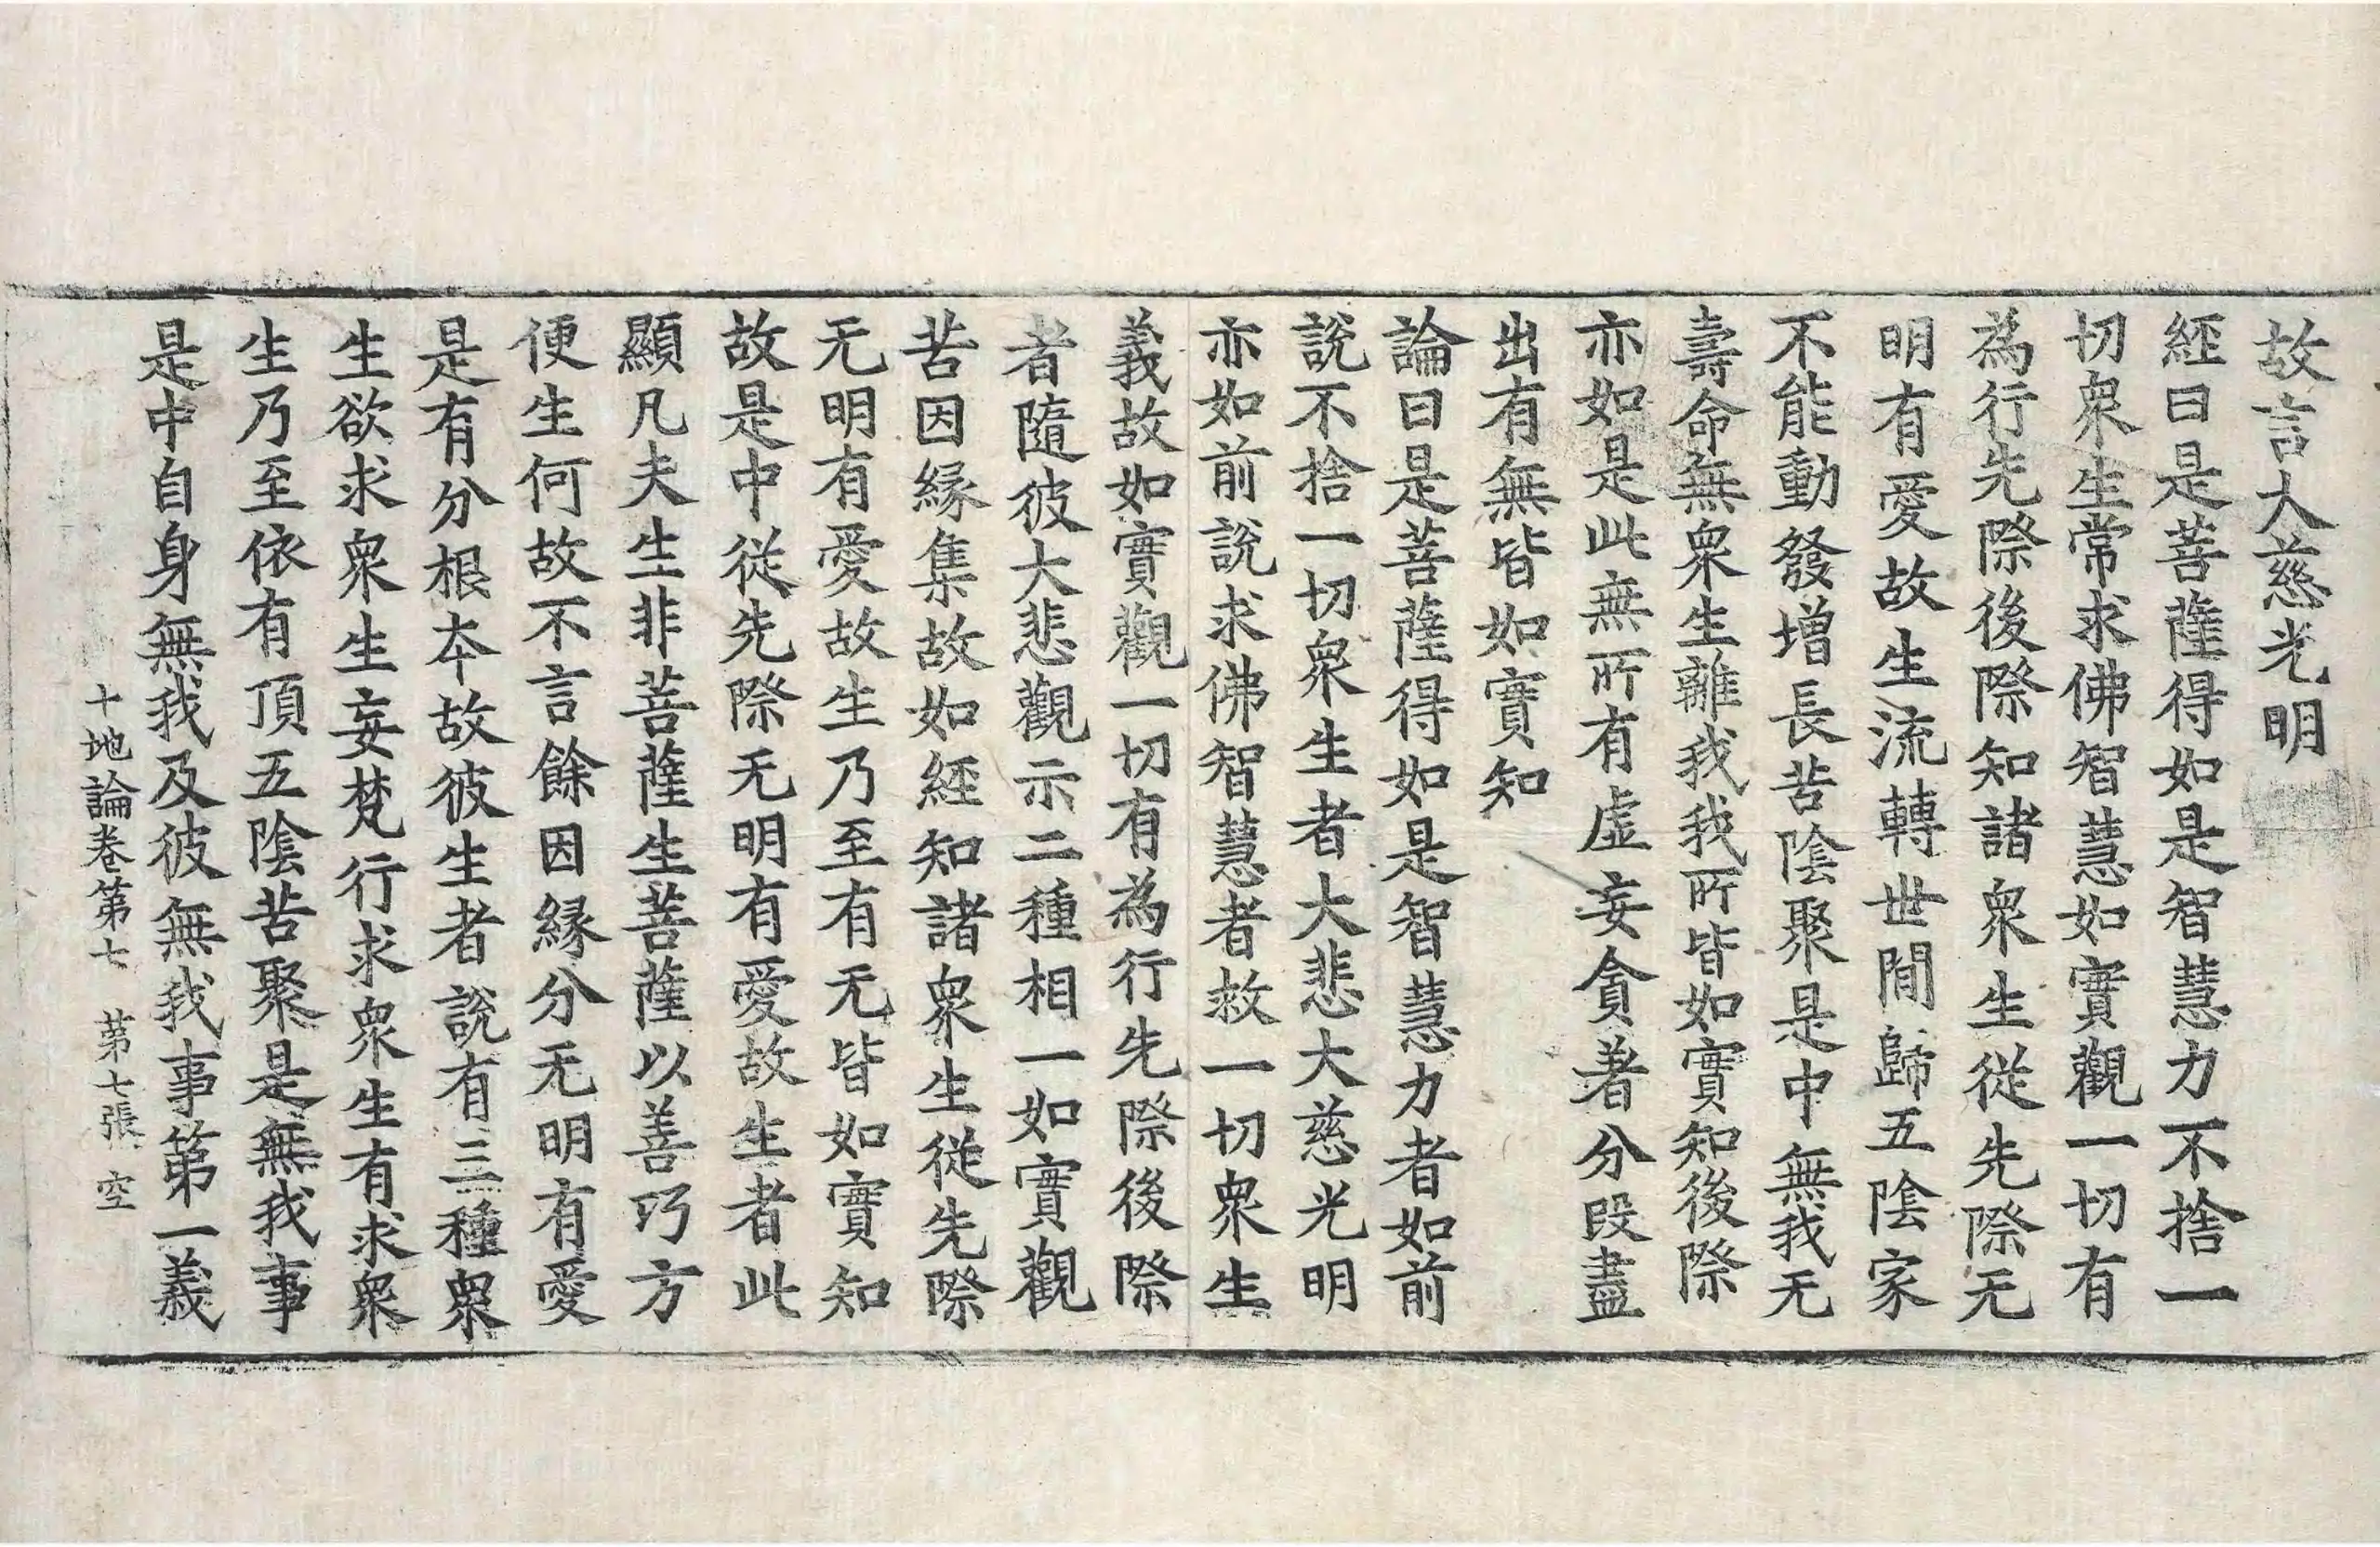 故言大慈光明
經曰是菩薩得如是智慧力不捨一
切衆生常求佛智慧如實觀一切有
為行先際後際知諸衆生從先際无
明有愛故生流轉世間歸五陰家
不能動發增長苦陰聚是中無我无
壽命無衆生離我我所皆如實知後際
亦如是此無所有虛妄貪著分段盡
出有無皆如實知
論曰是菩薩得如是智慧力者如前
說不捨一切衆生者大悲大慈光明
亦如前說求佛智慧者救一切衆生
義故如實觀一切有為行先際後際
者隨彼大悲觀示二種相一如實觀
苦因緣集故如經知諸衆生從先際
无明有愛故生乃至有无皆如實知
故是中從先際无明有愛故生者此
顯凡夫生非菩薩生菩薩以善巧方
便生何故不言餘因緣分无明有愛
是有分根本故彼生者說有三種衆
生欲求衆生妄梵行求衆生有求衆
生乃至依有頂五陰苦聚是無我事
是中自身無我及彼無我事第一義
十地論卷第七 第七張 空